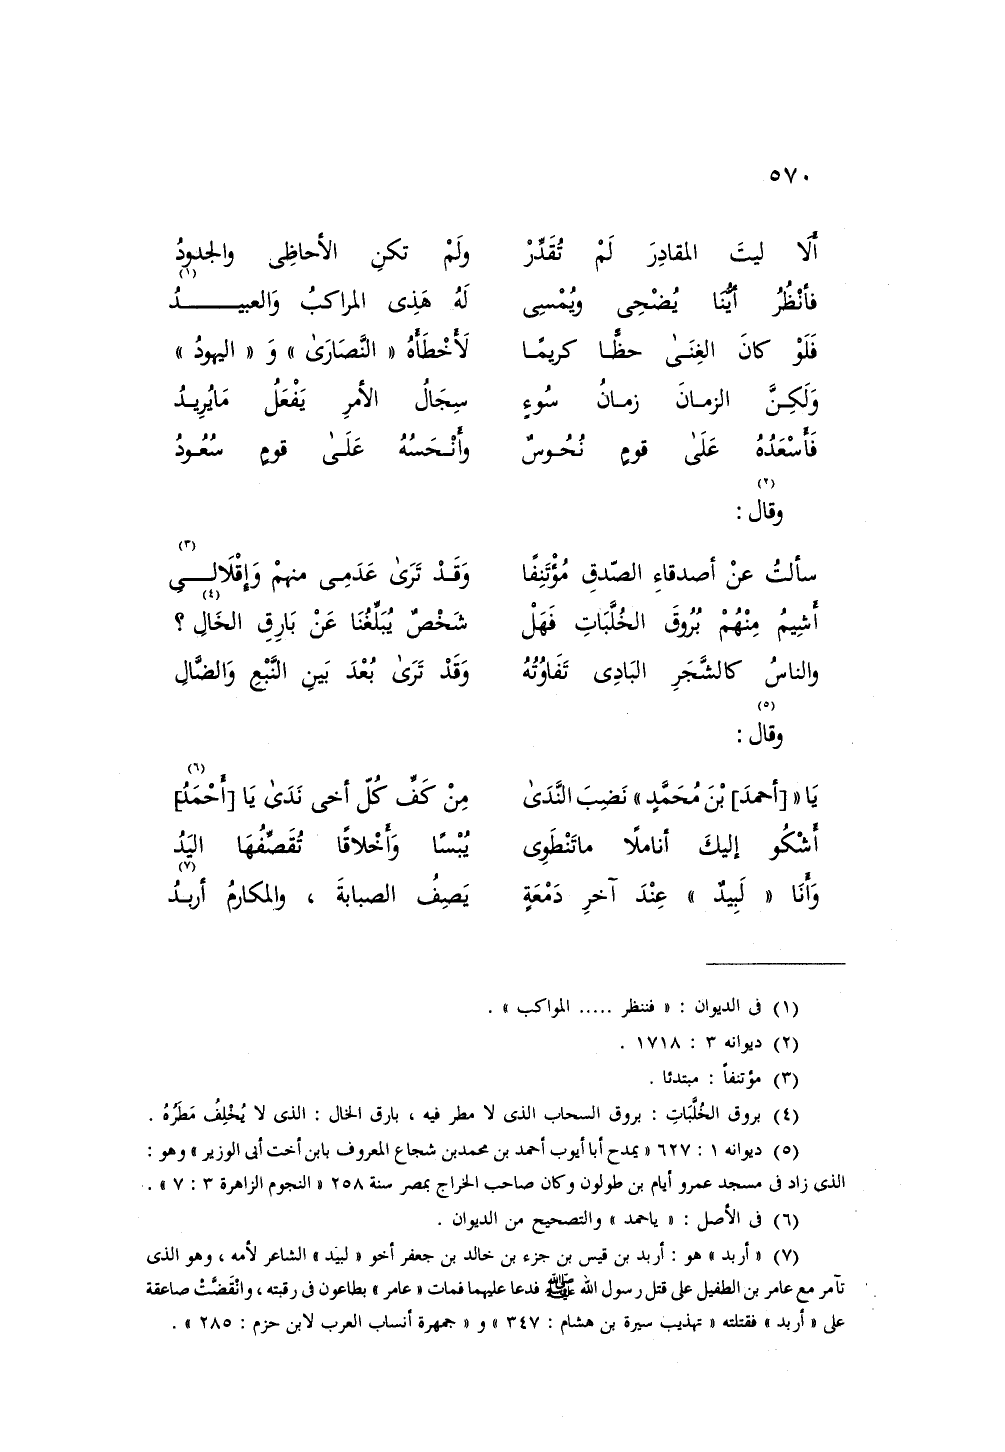 ٥٧٠
أَلَا ليتَ المقادِرَ لَمْ تُقَدَّرْ ولَمْ تكنِ الأحاظِى والجدودُ
(١)
فأنْظُرُ أيُّنَا يُضْحِى ويُمْسِى لَهُ هَذِى المراكبُ وَالعبيـــــــدُ
فَلَوْ كانَ الغِنَىٰ حظًّا كريمًا لَأَخْطَأَهُ « النَّصَارَىٰ » وَ « اليهودُ »
وَلَكِنَّ الزمانَ زمانُ سُوءٍ سِجَالُ الأمرِ يَفْعَلُ مَايُرِيدُ
فَأَسْعَدُهُ عَلَىٰ قومٍ نُحُوسٌ وأَنْحَسُهُ عَلَىٰ قومٍ سُعُودُ
(٢)
وقال :
(٣)
سألتُ عنْ أصدقاءِ الصّدقِ مُؤْتَنِفًا وَقَدْ تَرَىٰ عَدَمِى منهمْ وَإِقْلَالِــى
(٤)
أَشِيمُ مِنْهُمْ بُرُوقَ الخُلَّبَاتِ فَهَلْ شَخْصٌ يُبَلِّغُنَا عَنْ بَارِقِ الخَالِ ؟
والناسُ كالشَّجَرِ البَادِى تَفَاوُتُهُ وَقَدْ تَرَىٰ بُعْدَ بَينِ النَّبْعِ وَالضَّالِ
(٥)
وقال :
(٦)
يَا « [أحمدَ] بْنَ مُحَمَّدٍ » نَضِبَ النَّدَىٰ مِنْ كَفِّ كُلّ أخى نَدَىٰ يَا [أَحْمَدُ]
أَشْكُو إليكَ أناملًا ماتَنْطَوِى يُبْسًا وَأَخْلاقًا تُقَصِّفُهَا اليَدُ
(٧)
وَأَنَا « لَبِيدٌ » عِنْدَ آخرِ دَمْعَةٍ يَصِفُ الصبابةَ ، والمكارمُ أربدُ
(١) فى الديوان : « فننظر ..... المواكب » .
(٢) ديوانه ٣ : ١٧١٨ .
(٣) مؤتنفاً : مبتدئا .
(٤) بروق الخُلَّبَاتِ : بروق السحاب الذى لا مطر فيه ، بارق الخال : الذى لا يُخْلِفُ مَطَرُهُ .
(٥) ديوانه ١ : ٦٢٧ « يمدح أبا أيوب أحمد بن محمدبن شجاع المعروف بابن أخت أبى الوزير » وهو :
الذى زاد فى مسجد عمرو أيام بن طولون وكان صاحب الخراج بمصر سنة ٢٥٨ « النجوم الزاهرة ٣ : ٧ » .
(٦) فى الأصل : « ياحمد » والتصحيح من الديوان .
(٧) « أربد » هو : أربد بن قيس بن جزء بن خالد بن جعفر أخو « لبيَد » الشاعر لأمه ، وهو الذى
تآمر مع عامر بن الطفيل على قتل رسول الله ﷺ فدعا عليهما فمات « عامر » بطاعون فى رقبته ، وانْقَضَّتْ صاعقة
على « أربد » فقتلته « تهذيب سيرة بن هشام : ٣٤٧ » و « جمهرة أنساب العرب لابن حزم : ٢٨٥ » .